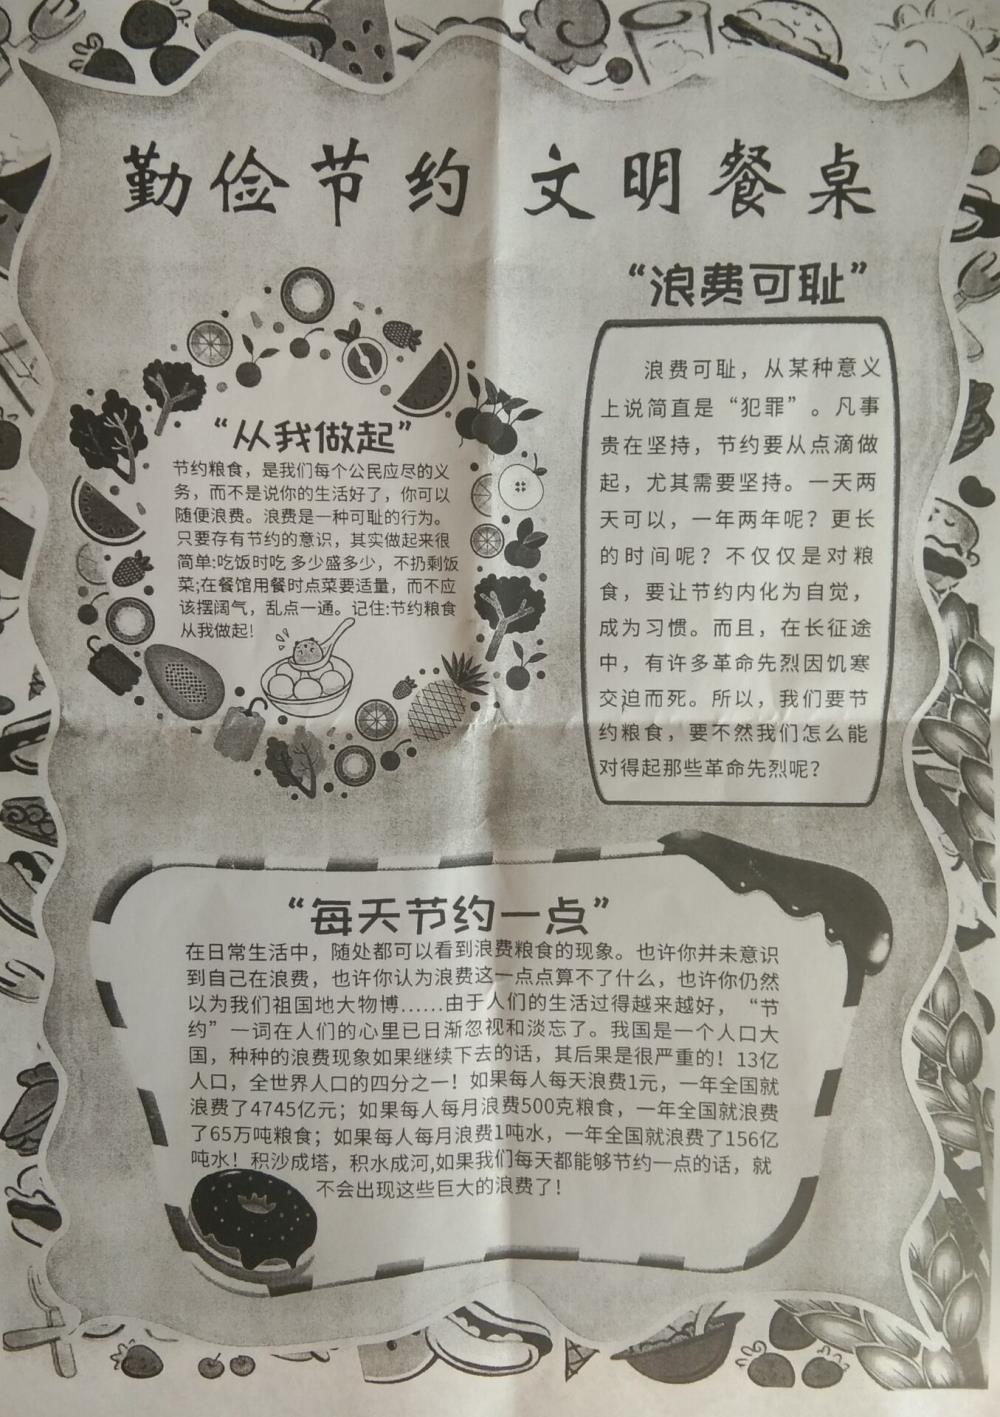 勤俭节约 文明餐桌
“从我做起”
节约粮食，是我们每个公民应尽的义
务，而不是说你的生活好了，你可以
随便浪费。浪费是一种可耻的行为。
只要存有节约的意识，其实做起来很
简单:吃饭时吃 多少盛多少，不扔剩饭
菜;在餐馆用餐时点菜要适量，而不应
该摆阔气，乱点一通。记住:节约粮食
从我做起!
“浪费可耻”
浪费可耻，从某种意义
上说简直是“犯罪”。凡事
贵在坚持，节约要从点滴做
起，尤其需要坚持。一天两
天可以，一年两年呢？更长
的时间呢？不仅仅是对粮
食，要让节约内化为自觉，
成为习惯。而且，在长征途
中，有许多革命先烈因饥寒
交迫而死。所以，我们要节
约粮食，要不然我们怎么能
对得起那些革命先烈呢？
“每天节约一点”
在日常生活中，随处都可以看到浪费粮食的现象。也许你并未意识
到自己在浪费，也许你认为浪费这一点点算不了什么，也许你仍然
以为我们祖国地大物博……由于人们的生活过得越来越好，“节
约”一词在人们的心里已日渐忽视和淡忘了。我国是一个人口大
国，种种的浪费现象如果继续下去的话，其后果是很严重的！13亿
人口，全世界人口的四分之一！如果每人每天浪费1元，一年全国就
浪费了4745亿元；如果每人每月浪费500克粮食，一年全国就浪费
了65万吨粮食；如果每人每月浪费1吨水，一年全国就浪费了156亿
吨水！积沙成塔，积水成河,如果我们每天都能够节约一点的话，就
不会出现这些巨大的浪费了！